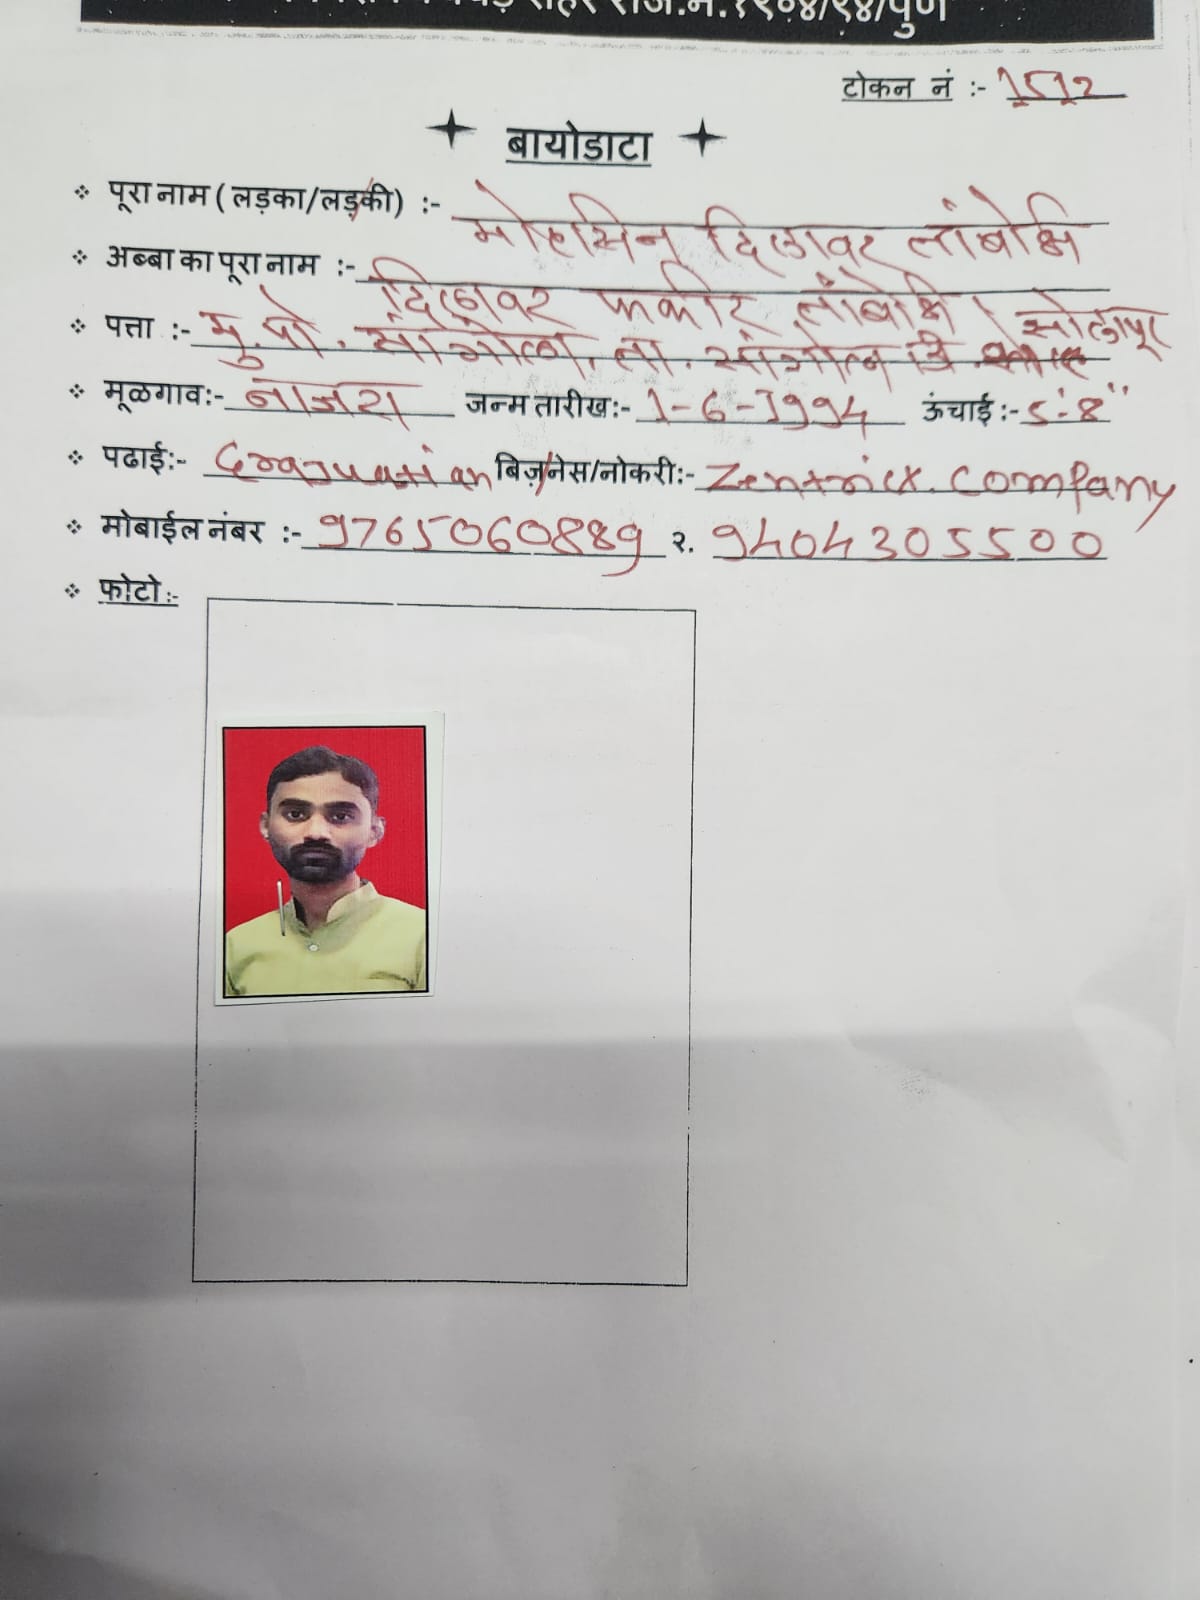 शहर राज.न.१९०४/९४/पुणे
टोकन नं :- 1512
बायोडाटा
पूरा नाम ( लड़का/लड़की) :- मोहसिन दिलावर तांबोळी
अब्बा का पूरा नाम :- दिलावर फकीर तांबोळी
पत्ता :- मु.पो. सांगोला, ता. सांगोला जि सोलापूर
मूळगाव:- नाझरा जन्म तारीख:- 1-6-1994 ऊंचाई :- 5'8"
पढाई:- Graduation बिज़नेस/नोकरी:- Zentrick. Company
मोबाईल नंबर :- 9765060889 २. 9404305500
फोटो :-